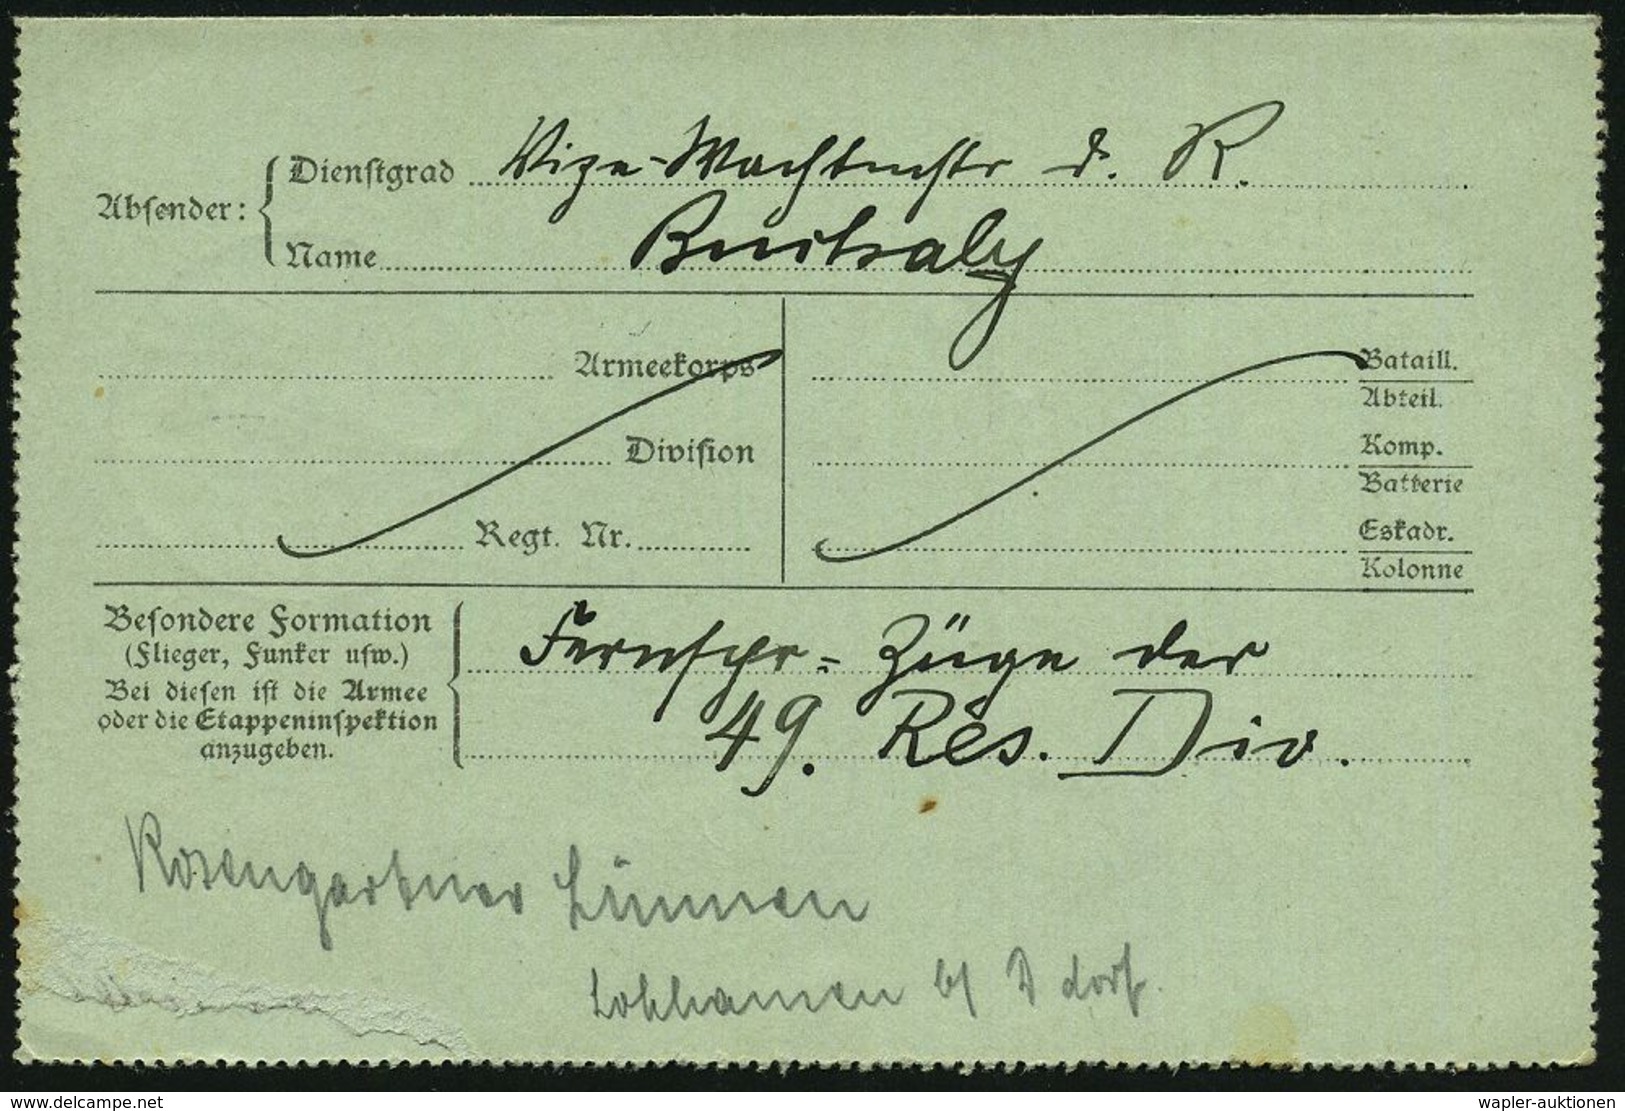 Absender:
Dienstgrad Vize-Wachtmstr d. R.
Name
Armeekorps
Division
Regt. Nr.
Bataill.
Abteil.
Komp.
Batterie
Eskadr.
Kolonne
Besondere Formation
(Flieger, Funker usw.)
Bei diesen ist die Armee
oder die Etappeninspektion
anzugeben.
Fernspr.-Züge der
49. Res. Div.
Rosengartner
b/ D dorf.
www.delcampe.net
wapler-auktionen